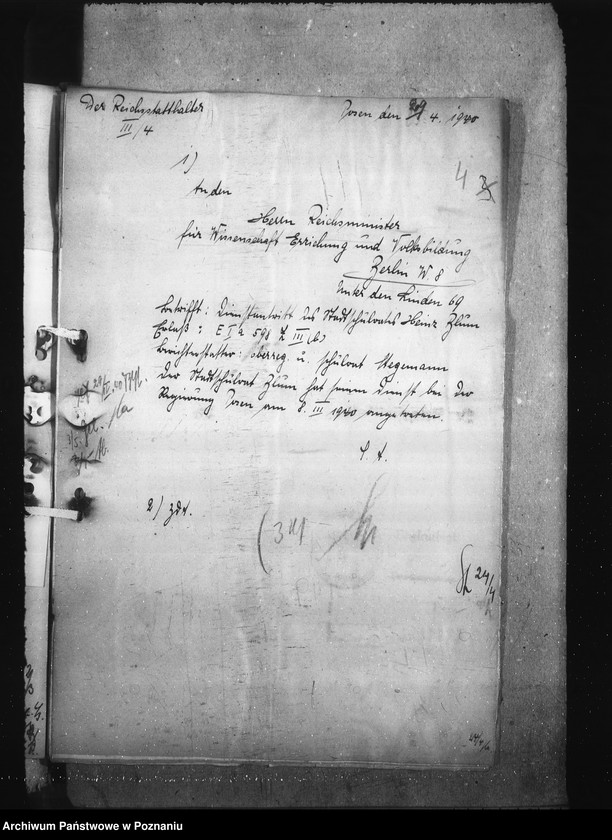 Der Reichsstatthalter
III/4
Posen den 29. 4. 1940
1)
An den
Herrn Reichsminister
für Wissenschaft Erziehung und Volksbildung
Berlin W 8
Unter den Linden 69
Betrifft: Dienstantritt des Stadtschulrates Heinz Blum
Erlaß: E I a 591 Z III (b)
Berichterstatter: Oberreg. u. Schulrat Stegemann
Der Stadtschulrat Blum hat seinen Dienst bei der
Regierung Posen am 8. III 1940 angetreten.
2) ZdA.
24/4
Archiwum Państwowe w Poznaniu